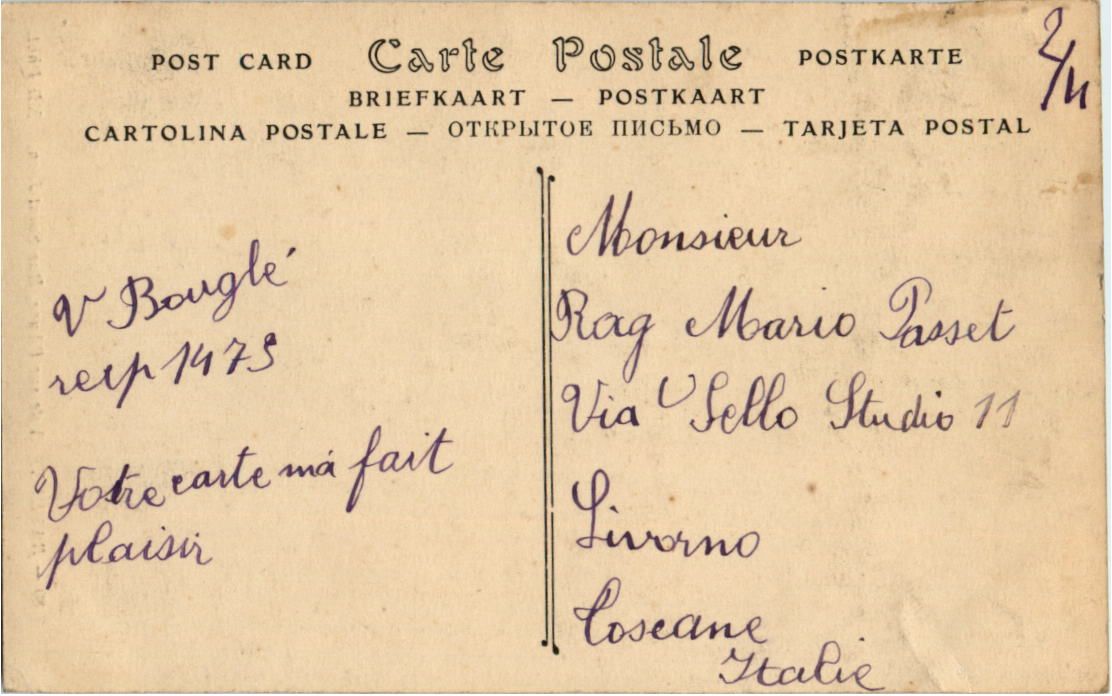 POST CARD Carte Postale POSTKARTE
BRIEFKAART — POSTKAART
CARTOLINA POSTALE — ОТКРЫТОЕ ПИСЬМО — TARJETA POSTAL
V Bouglé
resp 1473
Votre carte má fait
plaisir
Monsieur
Rag Mario Passet
Via Sello Studio 11
Livorno
Toscane
Italie